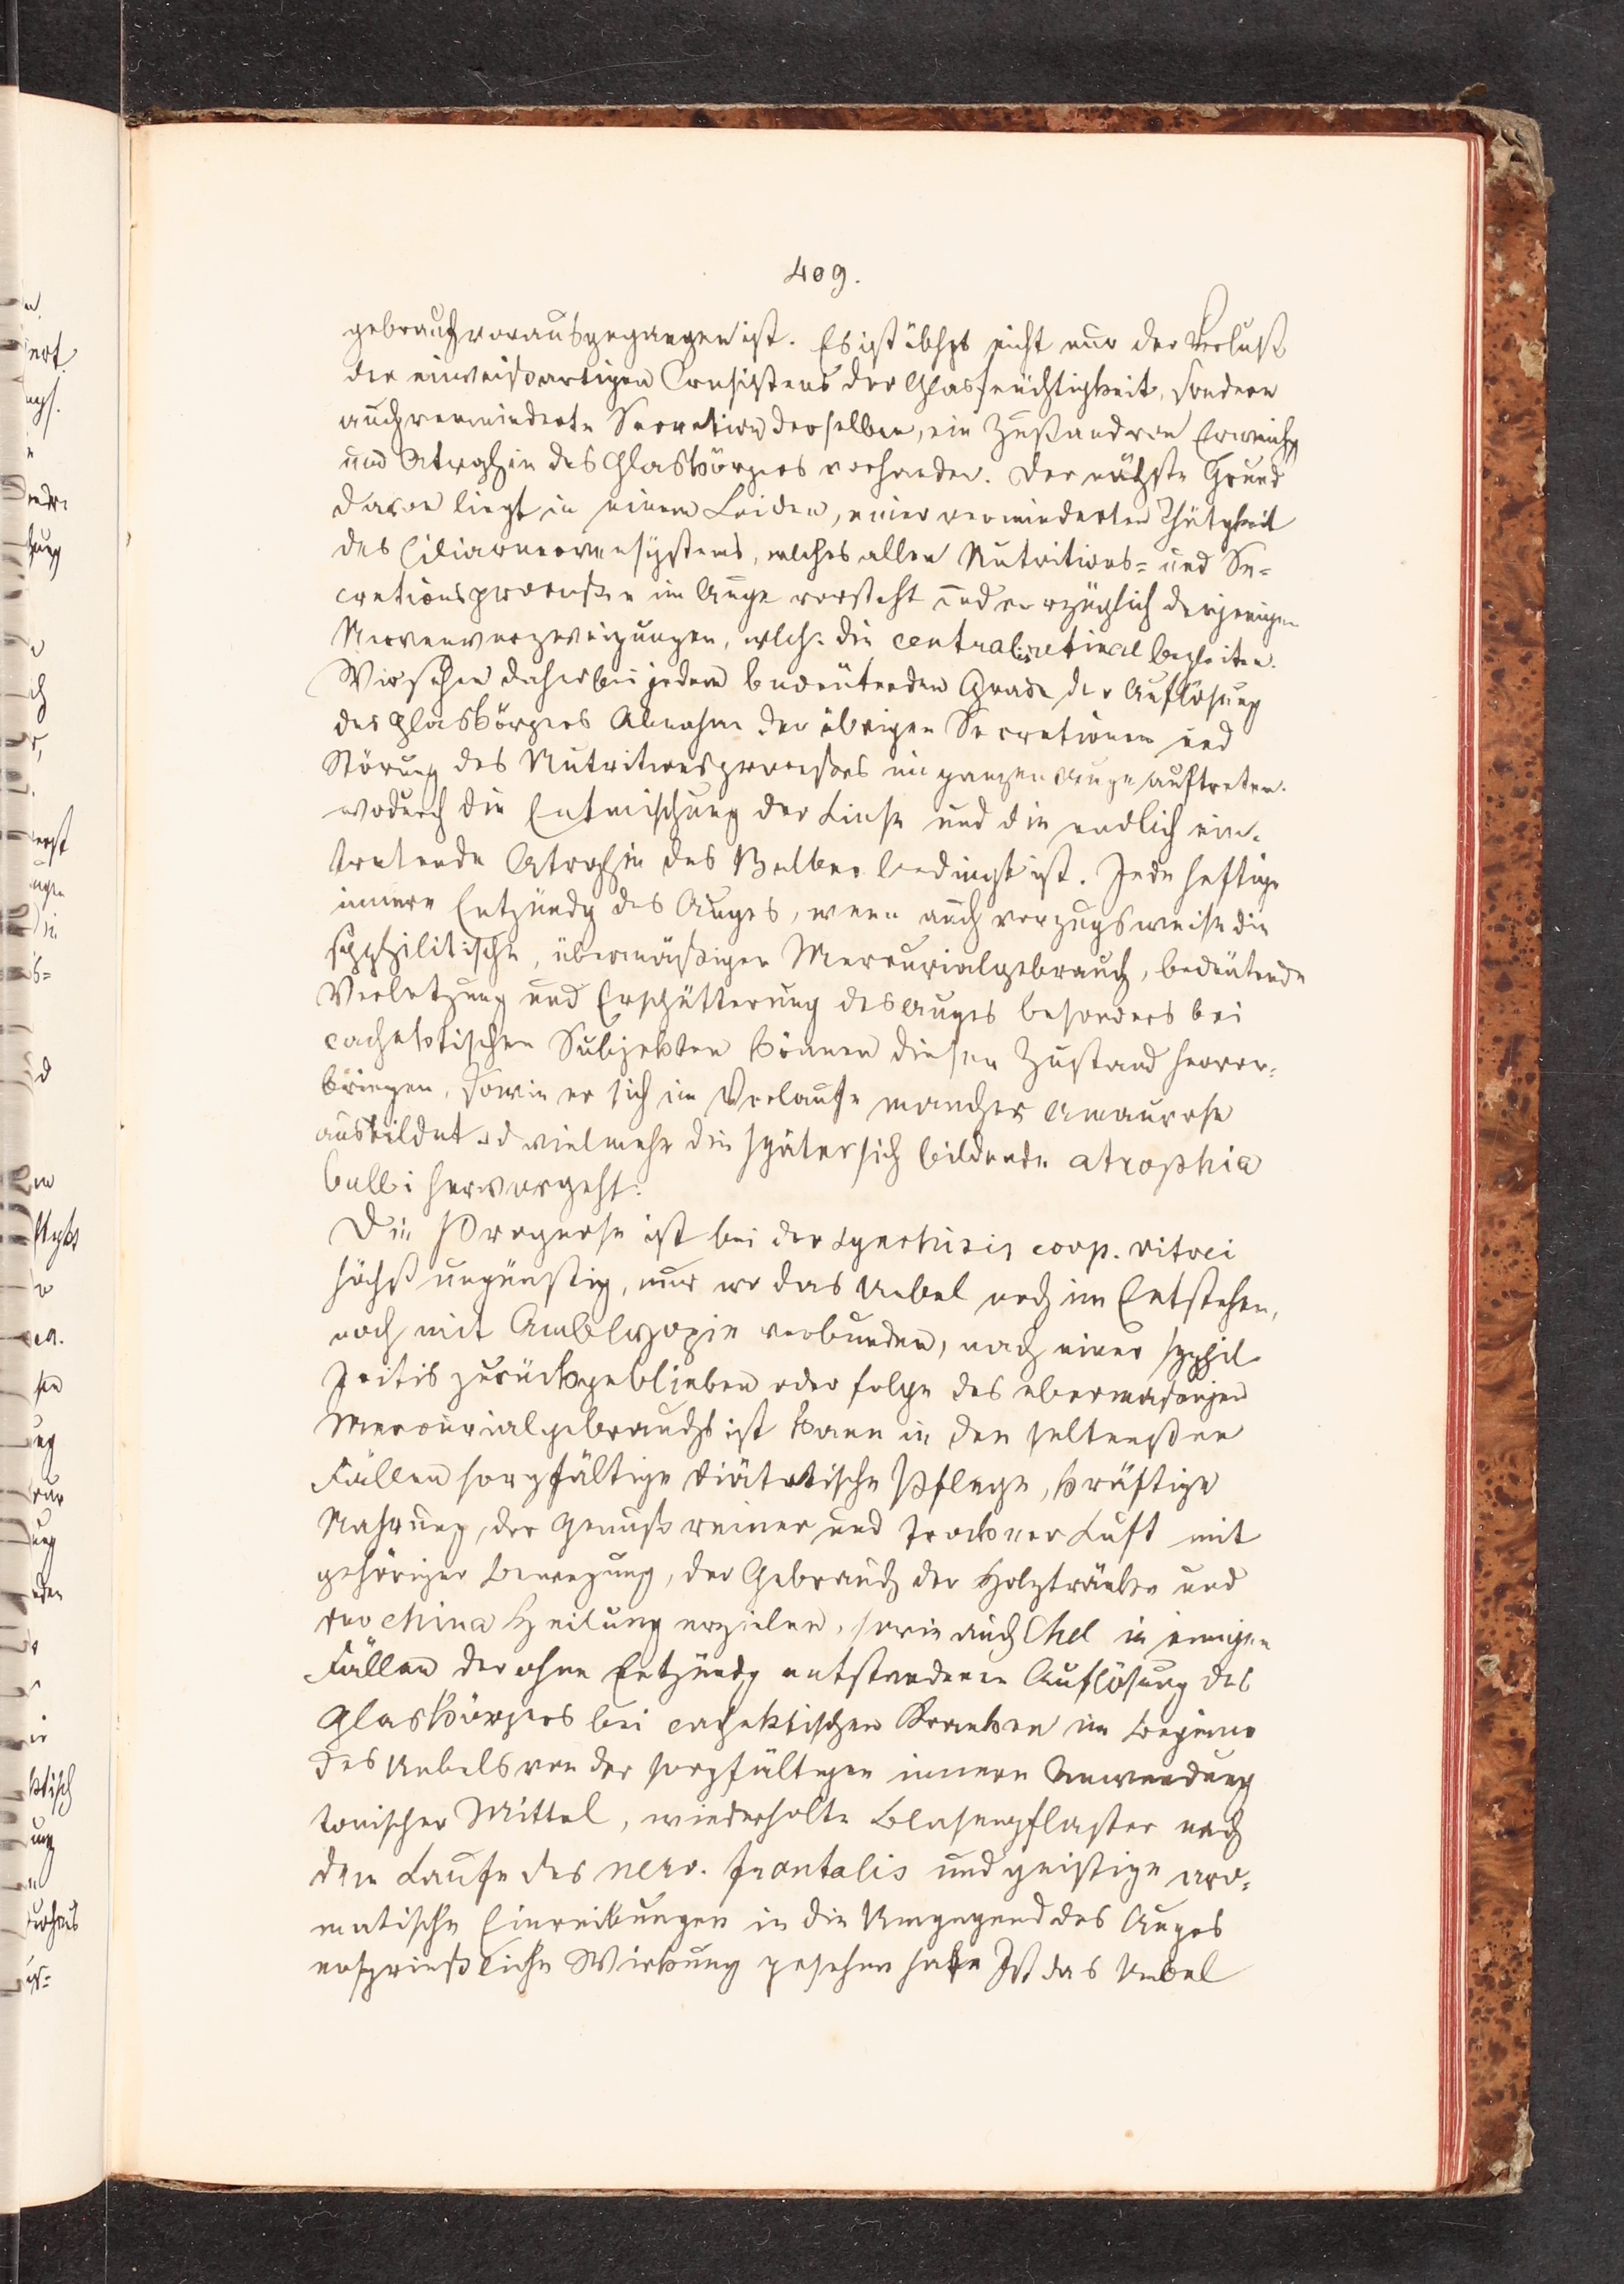 409.
gebrauch vorausgegangen ist. Es ist übhpt nicht nur der Verlust
der eiweisartigen Consistens der Glasfeuchtigkeit, sondern
auch verminderte Secretion derselben, ein Zustand von Erweichg
und Atrophie des Glaskörpers vorhanden. Der nächste Grund
davon liegt in einem Leiden, einer verminderten Thätgkeit
des Ciliarnervensystems, welches allen Nutritions- und Se-
cretionsprocessen im Auge vorsteht und vorzüglich derjenigen
Nervenverzweigungen, welche die centralis retinae begleiten.
Wir sehen daher bei jedem bedeutenden Grade der Auflösung
des Glaskörpers Abnahme der übrigen Secretionen und
Störung des Nutritionsprocesses im ganzen Auge auftreten.
wodurch die Entmischung der Linse und die endlich ein-
tretende Atrophie des Bulbus bedingt ist. Jede heftige
innere Entzündg des Auges, wenn auch vorzugsweise die
syphilitische, übermäßiger Mercurialgebrauch, bedeutende
Verletzung und Erschütterung des Auges besonders bei
cachektischen Subjekten können diesen Zustand hervor-
bringen, sowie er sich im Verlaufe mancher Amaurose
ausbildet ud vielmehr die später sich bildende atrophia
bulbi hervorgeht.
Die Prognose ist bei der Synchisis corp. vitrei
höchst ungünstig, nur wo das Uebel noch im Entstehen,
noch mit Amblyopie verbunden, nach einer syphil
Iritis zurückgeblieben oder folge des ebermasigen
Mercurialgebrauchs ist kann in den seltensten
Fällen sorgfältige diätetische Pflege, kräftige
Nahrung, der Genuß reiner und trockner Luft mit
gehöriger Bewegung, der Gebrauch der Holztränke und
der China Heilung erzielen, sowie auch Chel in einigen
Fällen der ohne Entzündg entstandenen Auflösung des
Glaskörpers bei cachektischen Kranken im Beginne
des Uebels von der sorgfältigen innern Anwendung
tonischer Mittel, wiederholte Blasenpflaster nach
dem Laufe des nerv. frontalis und geistige aro-
matische Einreibungen in die Umgegend des Auges
ersprießliche Wirkung gesehen habe Ist das Uebel